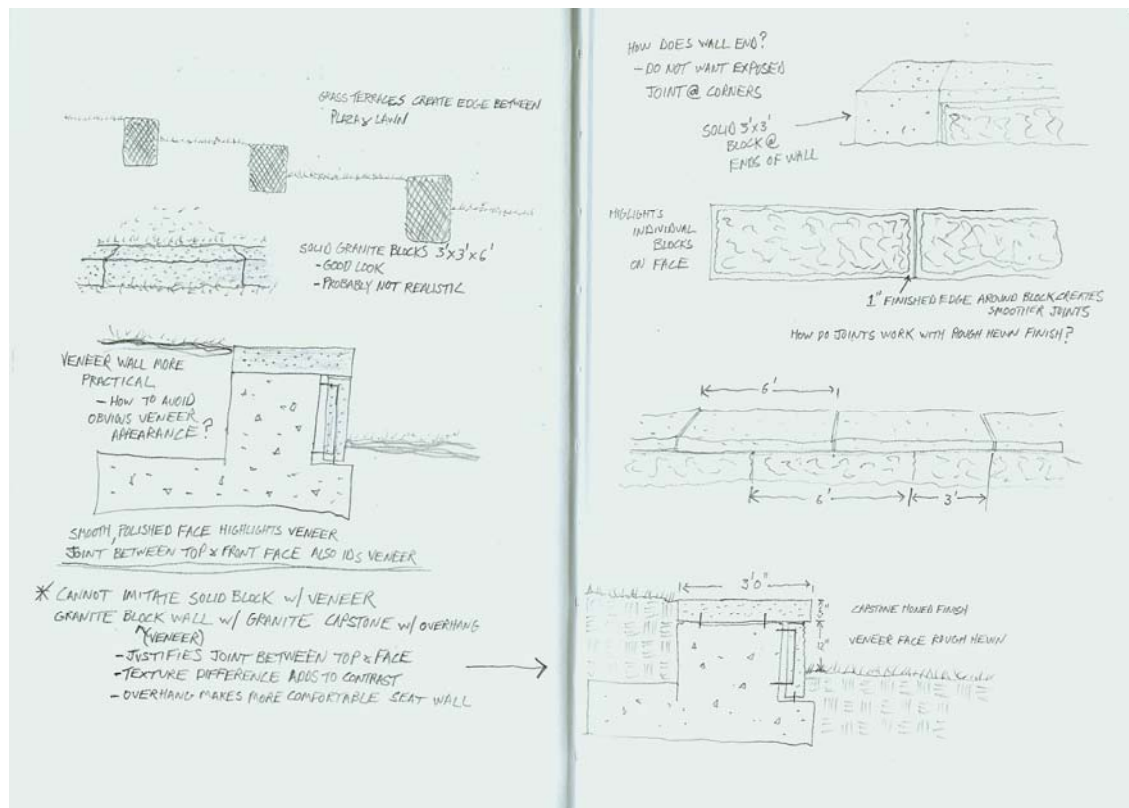 GRASS TERRACES CREATE EDGE BETWEEN
PLAZA & LAWN
SOLID GRANITE BLOCKS 3'x3'x6'
- GOOD LOOK
- PROBABLY NOT REALISTIC
VENEER WALL MORE
PRACTICAL
- HOW TO AVOID
OBVIOUS VENEER
APPEARANCE?
SMOOTH, POLISHED FACE HIGHLIGHTS VENEER
JOINT BETWEEN TOP & FRONT FACE ALSO IDS VENEER
* CANNOT IMITATE SOLID BLOCK W/ VENEER
GRANITE BLOCK WALL W/ GRANITE CAPSTONE W/ OVERHANG
(VENEER)
- JUSTIFIES JOINT BETWEEN TOP & FACE
- TEXTURE DIFFERENCE ADDS TO CONTRAST
- OVERHANG MAKES MORE COMFORTABLE SEAT WALL
HOW DOES WALL END?
- DO NOT WANT EXPOSED
JOINT @ CORNERS
SOLID 3'x3'
BLOCK @
ENDS OF WALL
HIGLIGHTS
INDIVIDUAL
BLOCKS
ON FACE
1" FINISHED EDGE AROUND BLOCK CREATES
SMOOTHER JOINTS
HOW DO JOINTS WORK WITH ROUGH HEWN FINISH?
6'
6'
3'
3'0"
CAPSTONE HONED FINISH
VENEER FACE ROUGH HEWN
12"